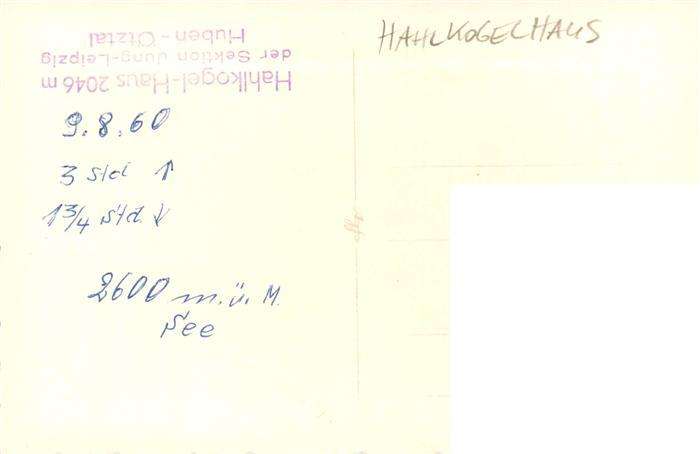 Hahlkogel-Haus 2046 m
der Sektion Jung-Leipzig
Huben - Ötztal
HAHLKOGELHAUS
9.8.60
3 Std ↑
1 3/4 Std. ↓
2600 m.ü.M.
See